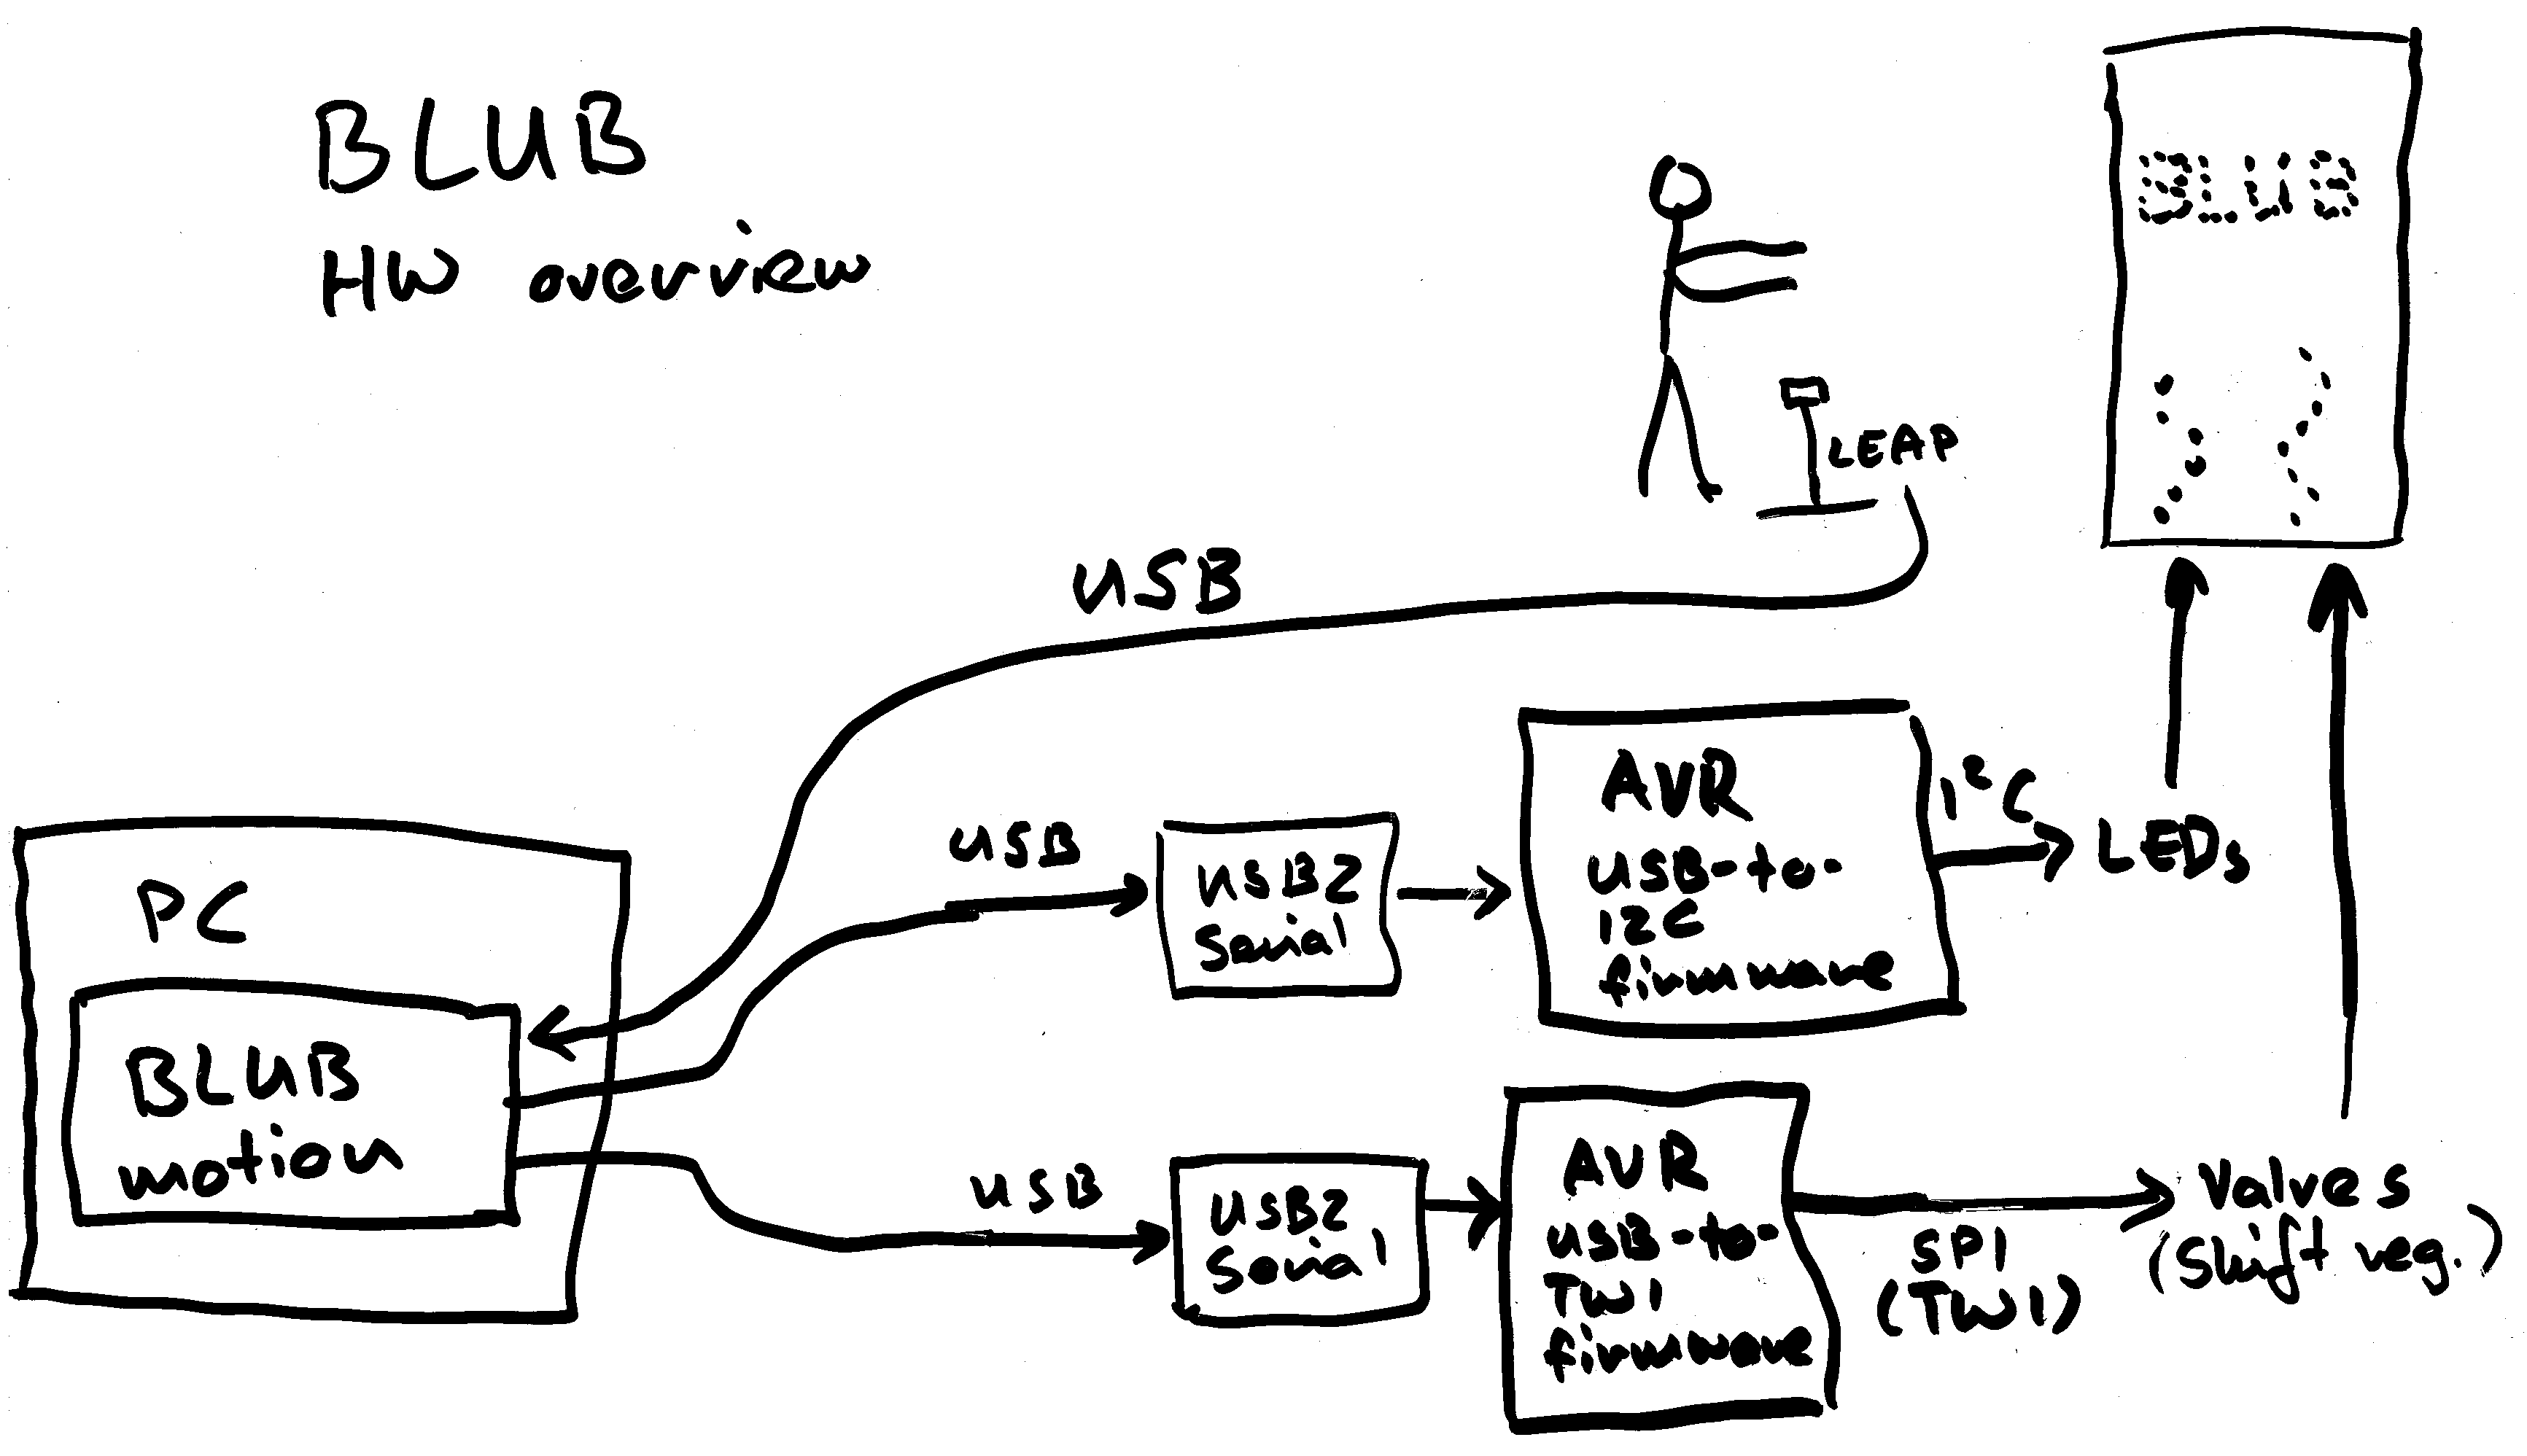 BLUB
HW overview
BLUB
LEAP
USB
PC
BLUB
motion
USB
USB2
Serial
AVR
USB-to-
I2C
firmware
I²C
LEDs
USB
USB2
Serial
AVR
USB-to-
TWI
firmware
SPI
(TWI)
Valves
(Shift reg.)